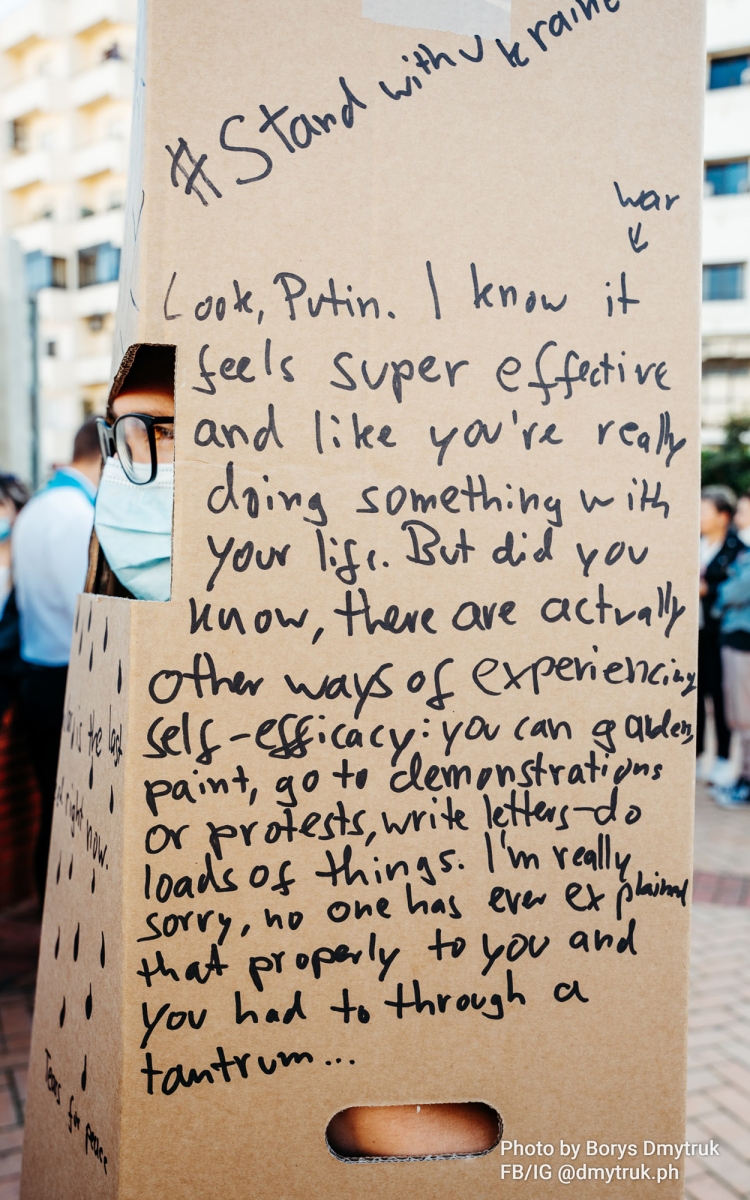 #Stand with Ukraine
war
↓
Look, Putin. I know it
feels super effective
and like you're really
doing something with
your life. But did you
know, there are actually
other ways of experiencing
self-efficacy: you can garden,
paint, go to demonstrations
or protests, write letters-do
loads of things. I'm really
sorry, no one has ever explained
that properly to you and
you had to through a
tantrum...
is the last
right now.
Tears for peace
Photo by Borys Dmytruk
FB/IG @dmytruk.ph